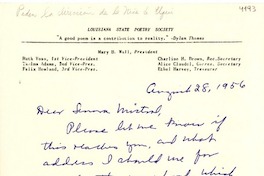 Pedir la dirección de la
4493
LOUISIANA STATE POETRY SOCIETY
"A good poem is a contribution to reality." -Dylan Thomas
Mary B. Wall, President
Ruth Ross, 1st Vice-President
Charline H. Brown, Rec.Secretary
Adams, 2nd Vice-Pres.
Alice Claudel, Corres. Secretary
Felix Howland, 3rd Vice-Pres.
Ethel Harvey, Treasurer
August 28, 1956
Dear Senora Mistral,
Please let me know if
this reaches you, and what
address I should use for
which